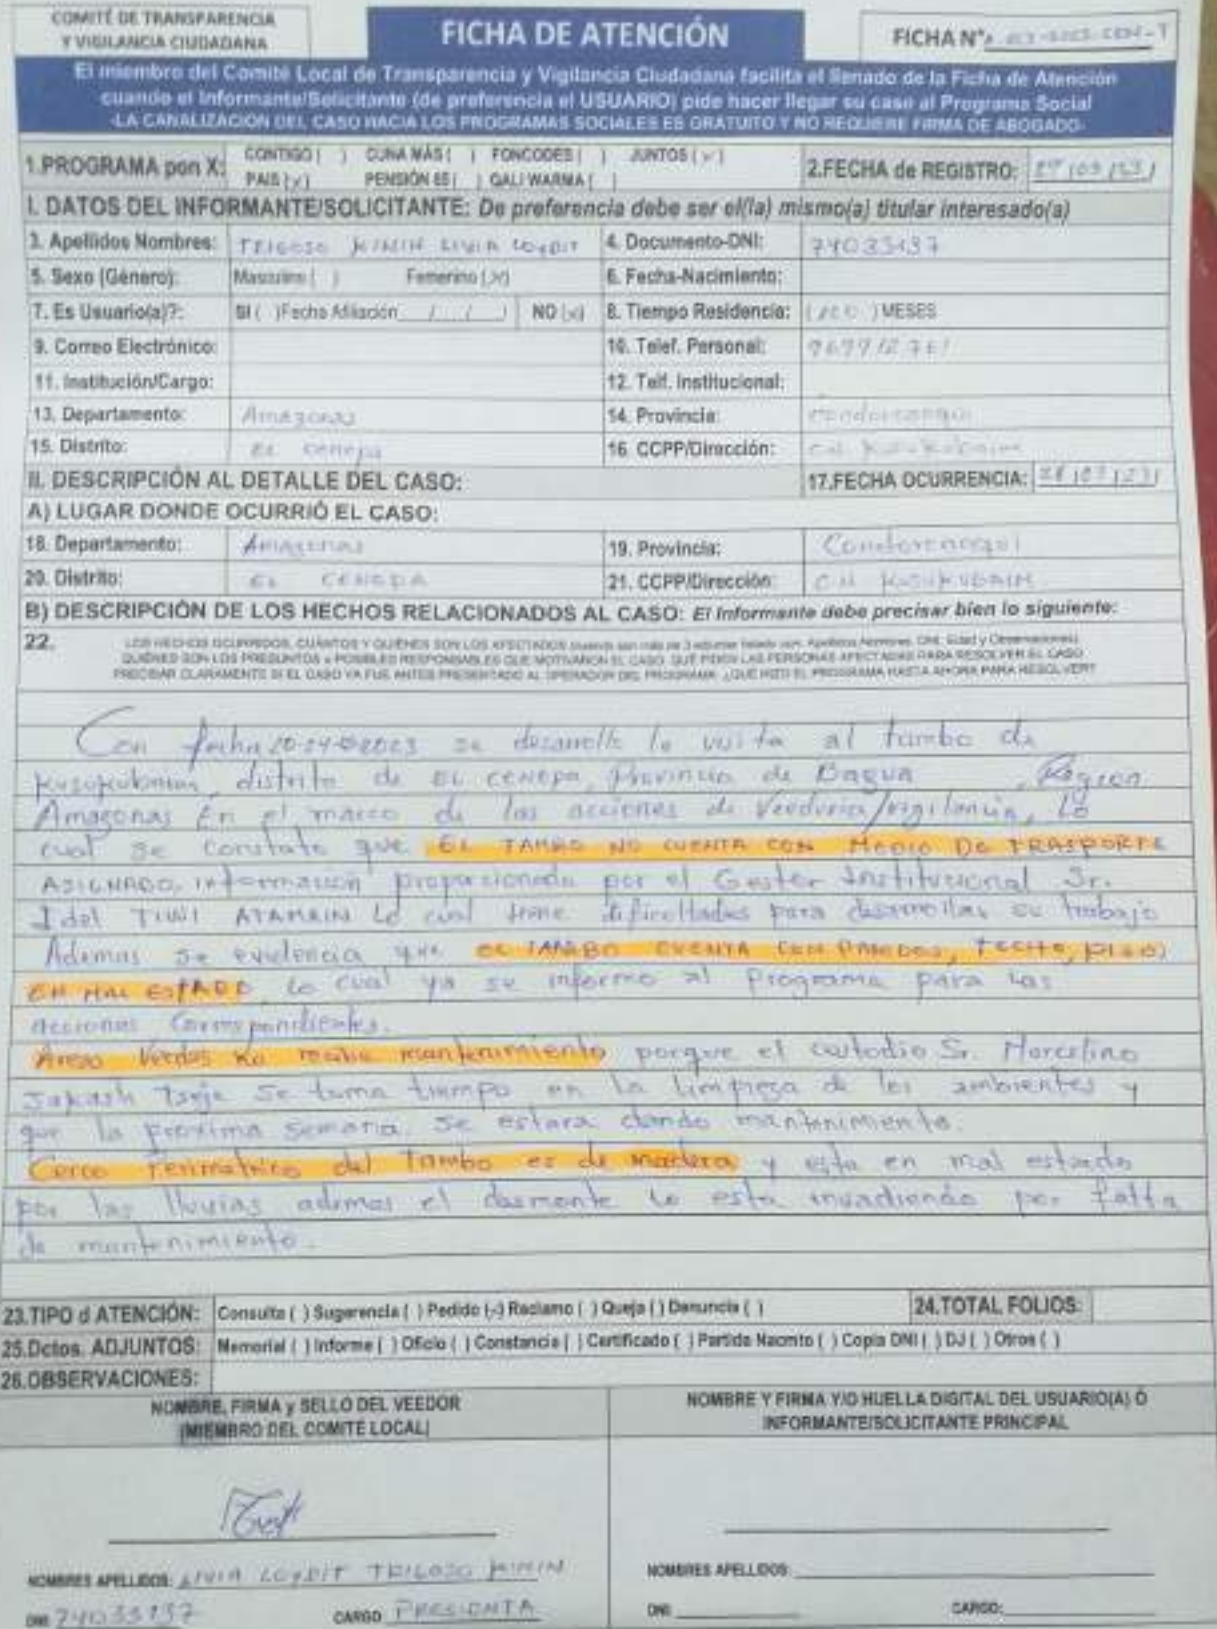 COMITÉ DE TRANSPARENCIA
Y VIGILANCIA CIUDADANA
FICHA DE ATENCIÓN
FICHA N°
El miembro del Comité Local de Transparencia y Vigilancia Ciudadana facilita el llenado de la Ficha de Atención
cuando el Informante/Solicitante (de preferencia el USUARIO) pide hacer llegar su caso al Programa Social
-LA CANALIZACION DEL CASO HACIA LOS PROGRAMAS SOCIALES ES GRATUITO Y NO REQUIERE FIRMA DE ABOGADO-
1.PROGRAMA pon X: CONTIGO ( ) CUNA MÁS ( ) FONCODES ( ) JUNTOS (x)
PAIS (x) PENSIÓN 65 ( ) QALI WARMA ( )
2.FECHA de REGISTRO:
I. DATOS DEL INFORMANTE/SOLICITANTE: De preferencia debe ser el(la) mismo(a) titular interesado(a)
3. Apellidos Nombres: TRIGOSO KININ LIVIA LOYDIT 4. Documento-DNI: 74033137
5. Sexo (Género): Masculino ( ) Femenino (x) 6. Fecha-Nacimiento:
7. Es Usuario(a)?: SI ( )Fecha Afiliación / / ) NO (x) 8. Tiempo Residencia: ( ) MESES
9. Correo Electrónico: 10. Telef. Personal: 969912761
11. Institución/Cargo: 12. Telf. Institucional:
13. Departamento: Amazonas 14. Provincia: Condorcanqui
15. Distrito: El Cenepa 16. CCPP/Dirección: CN Kusukubaim
II. DESCRIPCIÓN AL DETALLE DEL CASO: 17.FECHA OCURRENCIA:
A) LUGAR DONDE OCURRIÓ EL CASO:
18. Departamento: Amazonas 19. Provincia: Condorcanqui
20. Distrito: EL CENEPA 21. CCPP/Dirección: CN KUSUKUBAIM
B) DESCRIPCIÓN DE LOS HECHOS RELACIONADOS AL CASO: El Informante debe precisar bien lo siguiente:
22. LOS HECHOS OCURRIDOS, CUÁNTOS Y QUIÉNES SON LOS AFECTADOS
QUIÉNES SON LOS PRESUNTOS o POSIBLES RESPONSABLES QUE MOTIVARON EL CASO. QUÉ PIDEN LAS PERSONAS AFECTADAS PARA RESOLVER EL CASO
PRECISAR CLARAMENTE SI EL CASO YA FUE ANTES PRESENTADO AL OPERADOR DEL PROGRAMA. ¿QUÉ HIZO EL PROGRAMA HASTA AHORA PARA RESOLVER?
Con fecha se desarrollo la visita al tambo de
Kusukubaim, distrito de EL CENEPA, Provincia de Bagua , Region
Amazonas En el marco de las acciones de Veeduria/vigilancia, Lo
cual se constato que EL TAMBO NO CUENTA CON MEDIO DE TRASPORTE
ASIGNADO, informasion proporcionada por el Gestor Institucional Sr.
Idel TIWI ATAMAIN Lo cual tiene dificultades para desarrollar su trabajo
Ademas se evidencia que EL TAMBO CUENTA CON PAREDES, TECHO, PISO)
EN MAL ESTADO Lo cual ya se informo al programa para las
acciones Correspondientes.
Areas Verdes no recibe mantenimiento porque el custodio Sr. Marcelino
se toma tiempo en la limpieza de los ambientes y
que la proxima semana se estara dando mantenimiento.
Cerco Perimetrico del Tambo es de madera y esta en mal estado
por las lluvias ademas el desmonte lo esta invadiendo por falta
de mantenimiento.
23.TIPO d ATENCIÓN: Consulta ( ) Sugerencia ( ) Pedido (-) Reclamo ( ) Queja ( ) Denuncia ( ) 24.TOTAL FOLIOS:
25.Dctos. ADJUNTOS: Memorial ( ) Informe ( ) Oficio ( ) Constancia ( ) Certificado ( ) Partida Nacmto ( ) Copia DNI ( ) DJ ( ) Otros ( )
26.OBSERVACIONES:
NOMBRE, FIRMA y SELLO DEL VEEDOR
(MIEMBRO DEL COMITÉ LOCAL)
NOMBRE Y FIRMA Y/O HUELLA DIGITAL DEL USUARIO(A) Ó
INFORMANTE/SOLICITANTE PRINCIPAL
NOMBRES APELLIDOS: LIVIA LOYDIT TRIGOSO KININ
DNI 74033137 CARGO PRESIDENTA
NOMBRES APELLIDOS:
DNI CARGO: